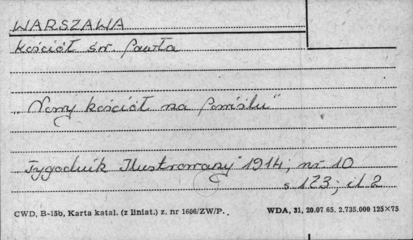 WARSZAWA
Kościół św. Pawła
„Nowy kościół na Powiślu"
Tygodnik Ilustrowany 1914, nr. 10
s. 123; il 2
CWD, B-15b, Karta katal. (z liniat.) z. nr 1606/ZW/P. WDA, 31, 20.07 65. 2.735.000 125×75